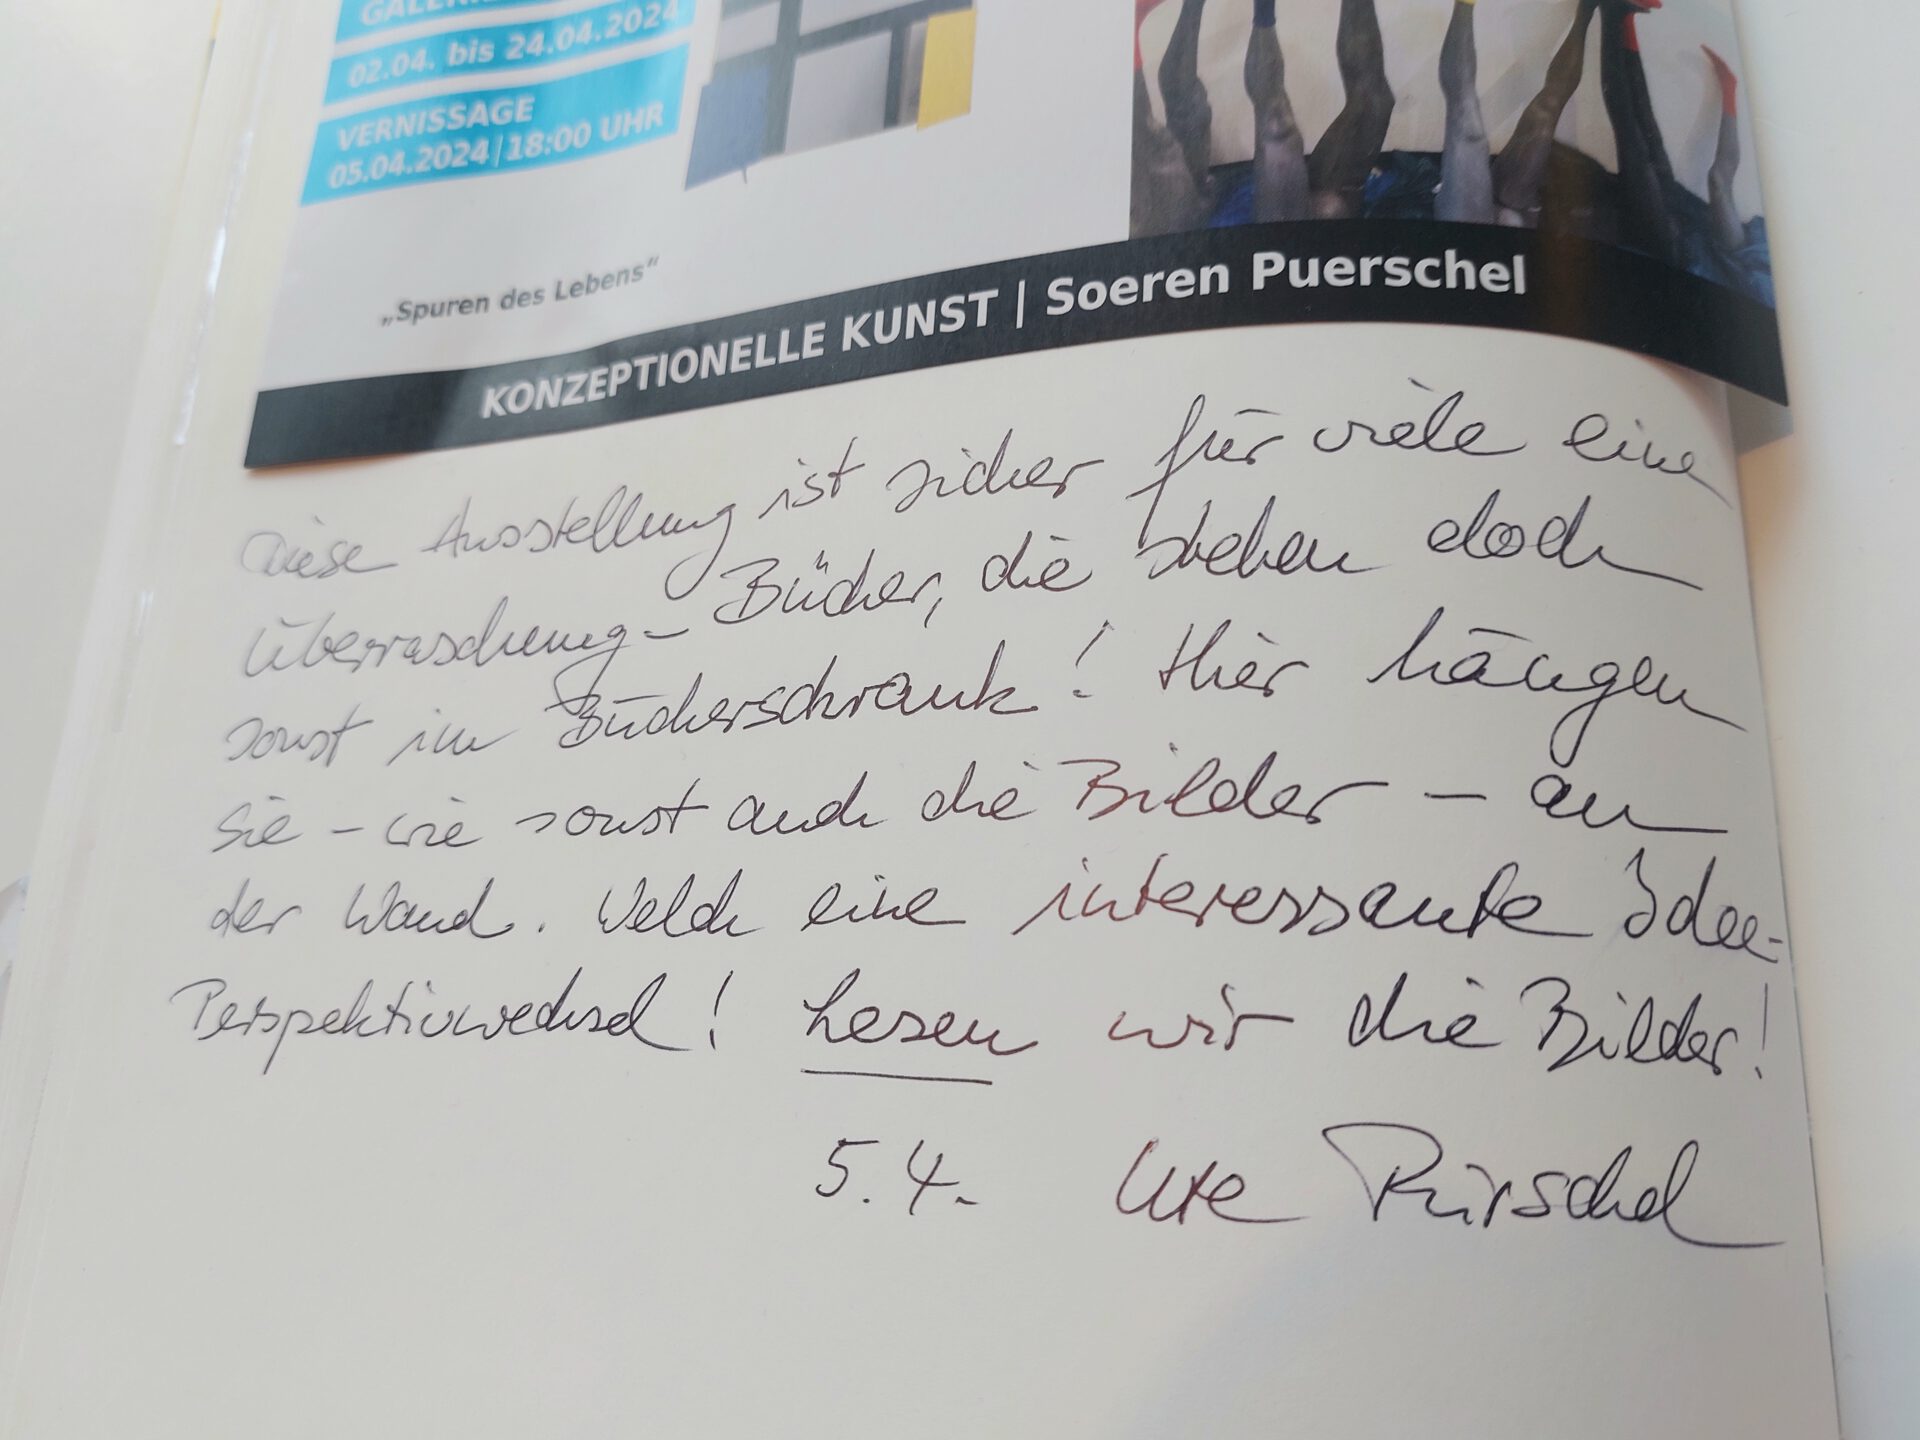 02.04. bis 24.04.2024
VERNISSAGE
05.04.2024|18:00 UHR
„Spuren des Lebens“
KONZEPTIONELLE KUNST | Soeren Puerschel
Diese Ausstellung ist sicher für viele eine
Überraschung – Bücher, die stehen doch
sonst im Bücherschrank! Hier hängen
sie – wie sonst auch die Bilder – an
der Wand. Welch eine interessante Idee –
Perspektivwechsel! Lesen wir die Bilder!
5.4. Ute Pürschel